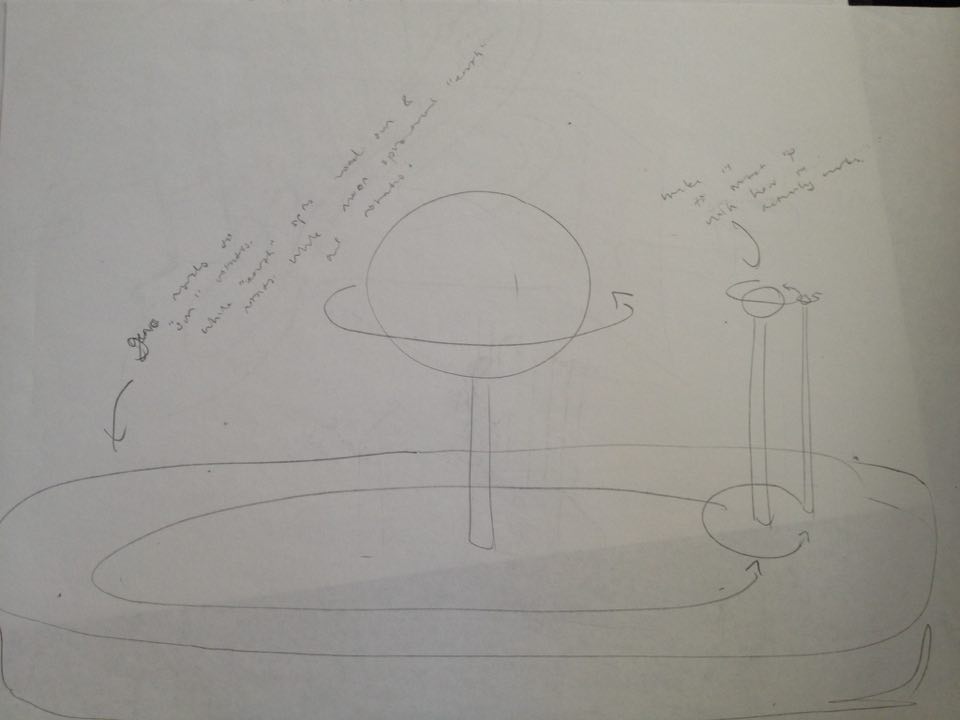 gears so
"sun" rotates.
while "earth" spins round sun &
rotates while moon spins around "earth"
and rotates.
make it
to
with how it
actually works